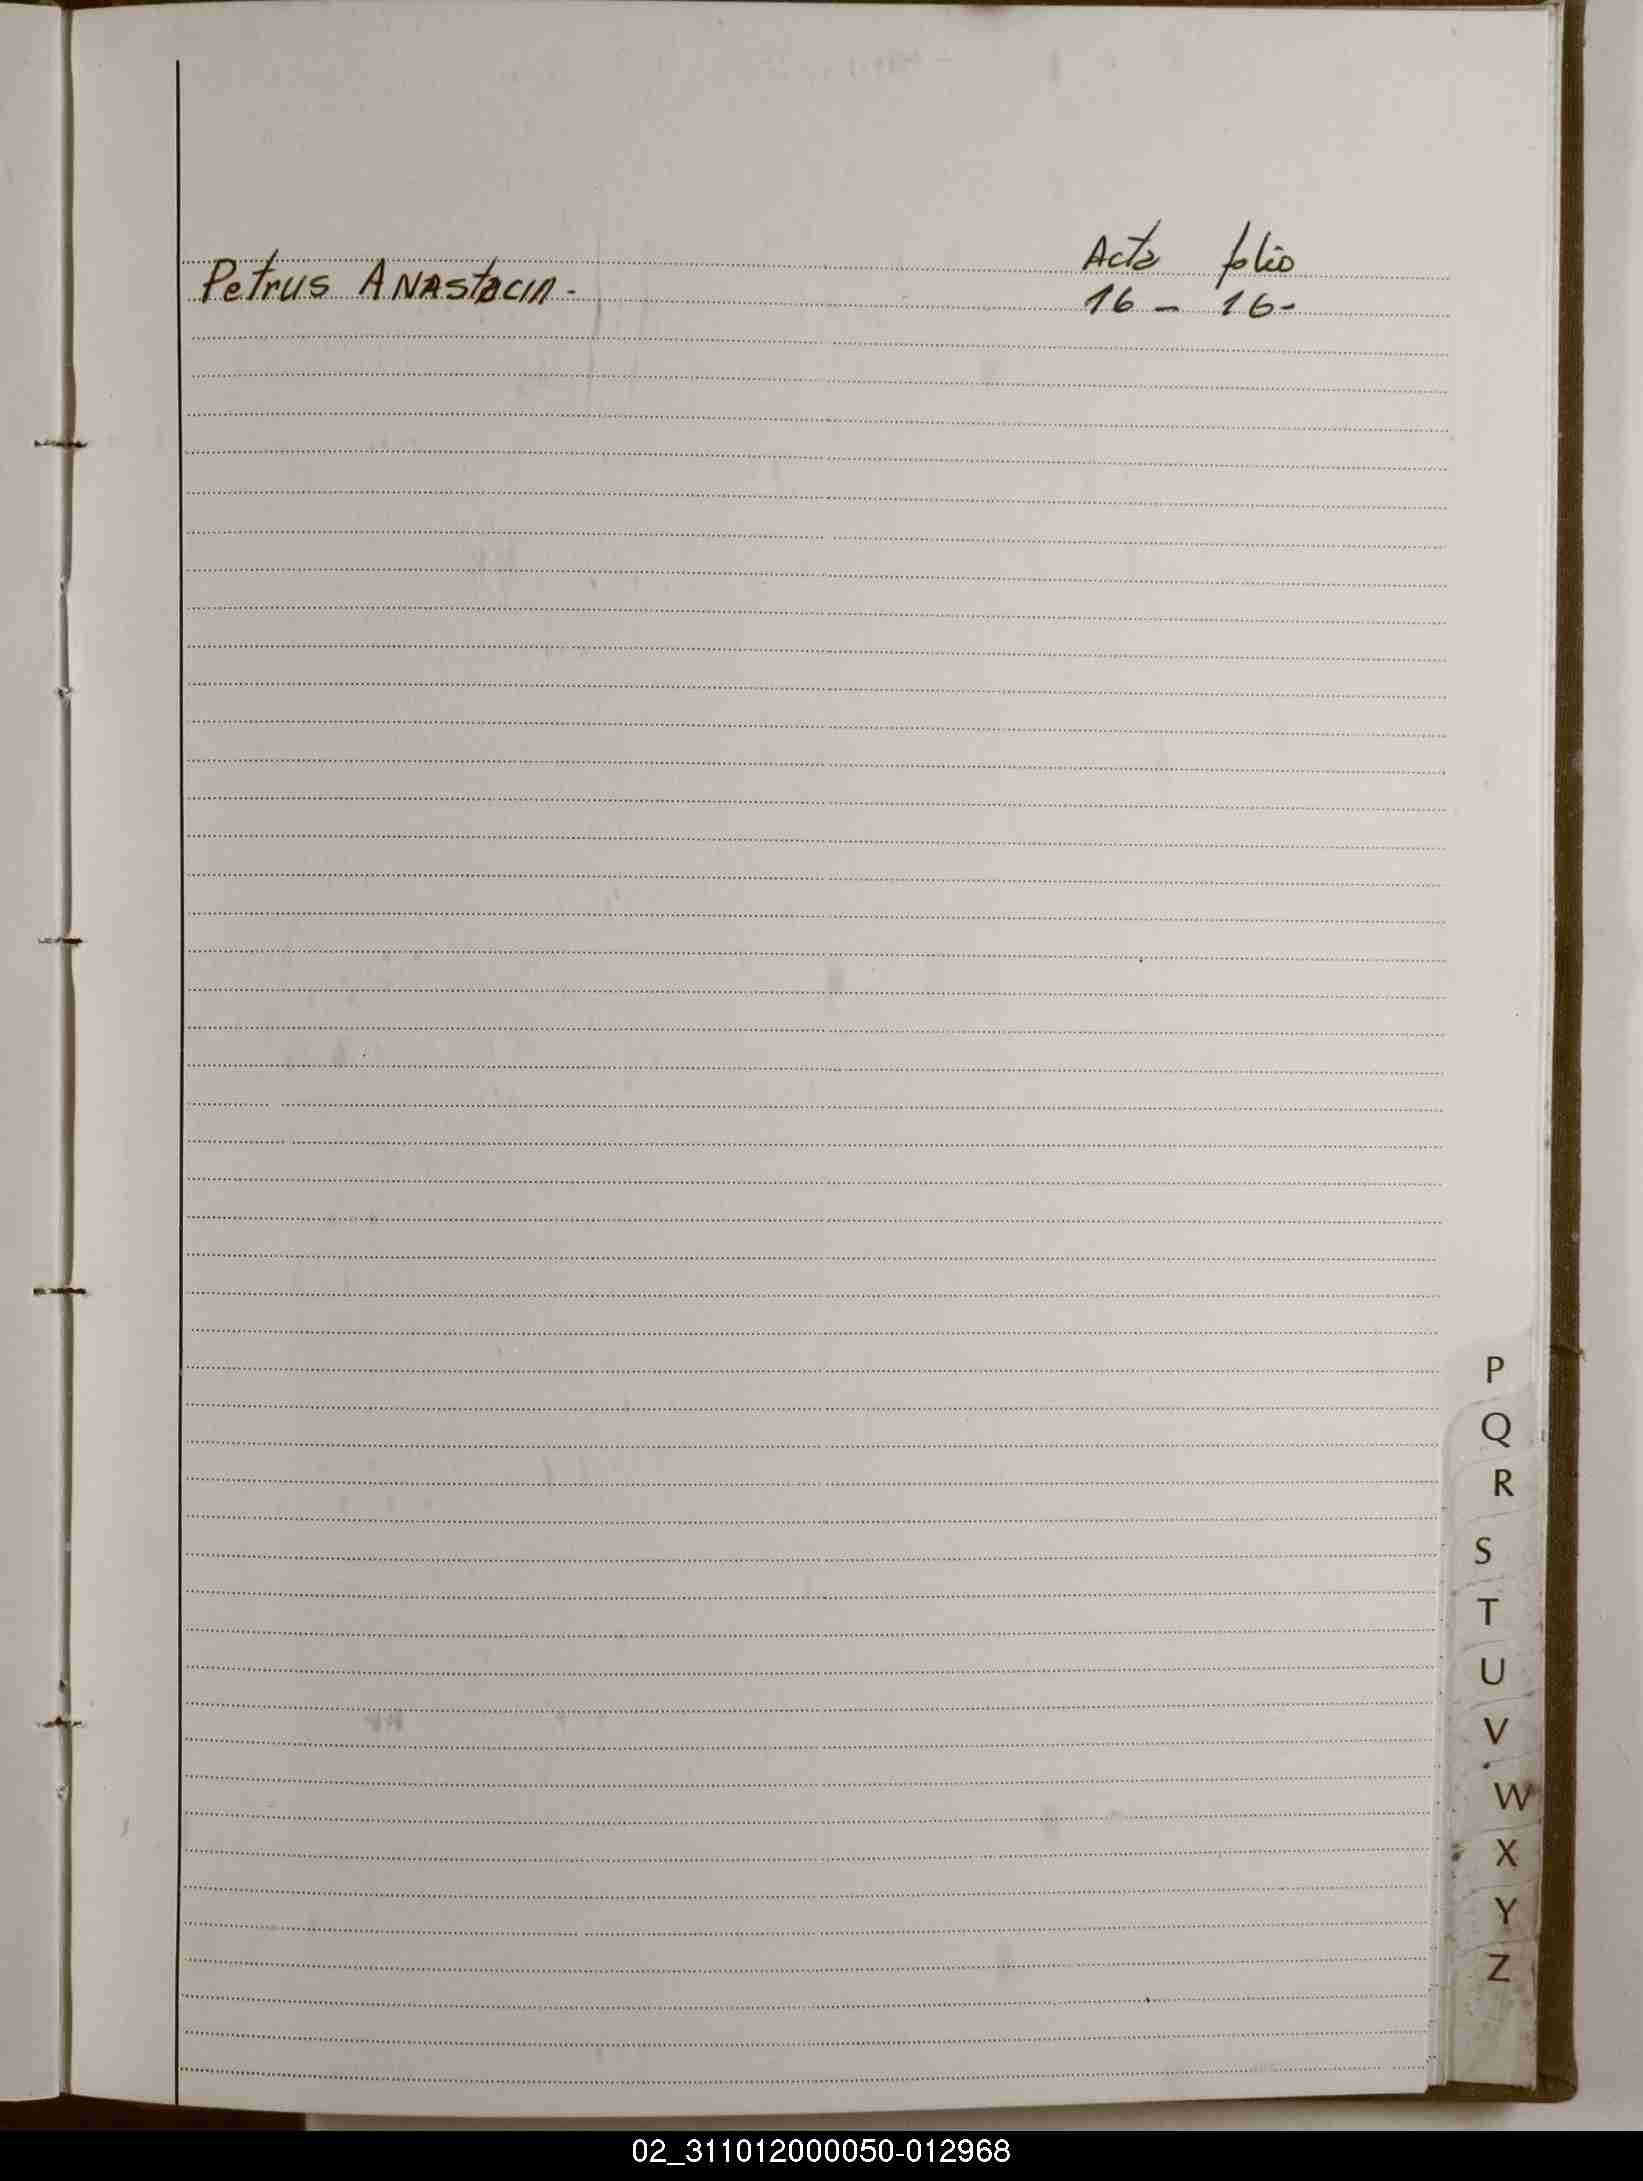 Acta folio
Petrus Anastacia - 16 - 16 -
P
Q
R
S
T
U
V
W
X
Y
Z
02_311012000050-012968